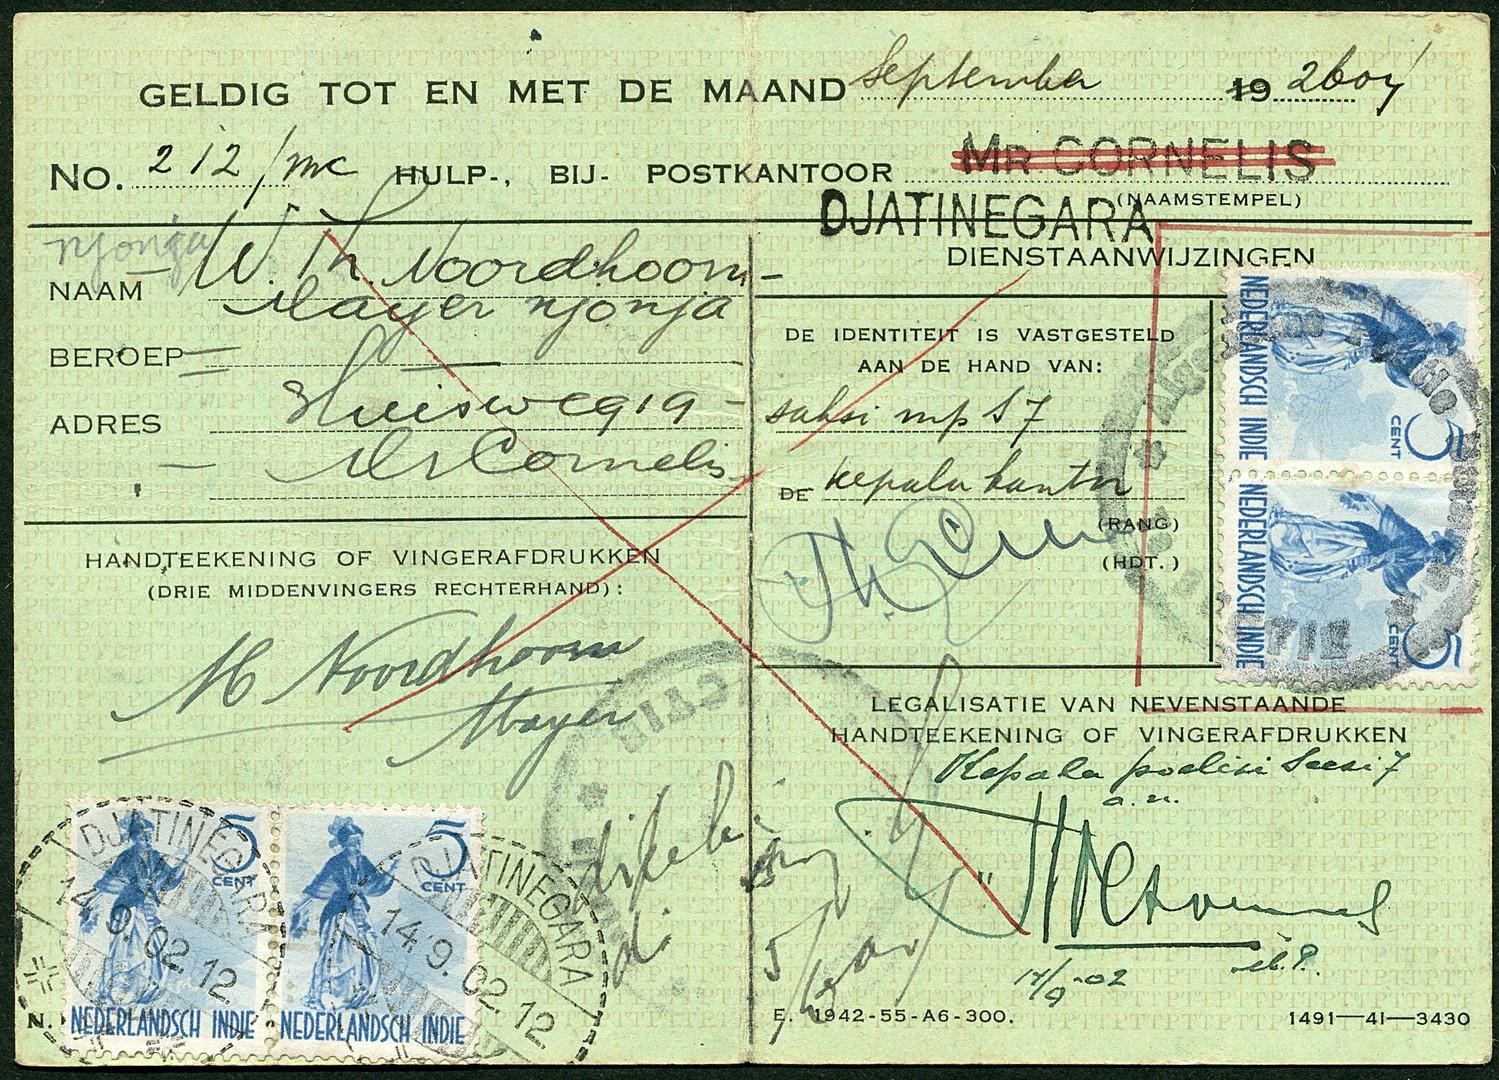 GELDIG TOT EN MET DE MAAND September 19 260
No. 212/mc HULP-, BIJ- POSTKANTOOR Mr CORNELIS
(NAAMSTEMPEL)
DJATINEGARA
njonja
NAAM W. Th. Noordhoorn-
Mayer njonja
BEROEP
ADRES Huisweg 19-
Mr Cornelis
HANDTEEKENING OF VINGERAFDRUKKEN
(DRIE MIDDENVINGERS RECHTERHAND):
M Noordhoorn
Mayer
DIENSTAANWIJZINGEN
DE IDENTITEIT IS VASTGESTELD
AAN DE HAND VAN:
saksi mp S 7
DE kepala kantor
(RANG)
(HDT.)
NEDERLANDSCH INDIE
5 CENT
NEDERLANDSCH INDIE
5 CENT
LEGALISATIE VAN NEVENSTAANDE
HANDTEEKENING OF VINGERAFDRUKKEN
Kepala poelisi Seksi 7
a.n.
14/9-02
di
5 CENT
NEDERLANDSCH INDIE
5 CENT
NEDERLANDSCH INDIE
DJATINEGARA
14.9.02.12
DJATINEGARA
14.9.02.12
N.
E. 1942-55-A6-300.
1491—41—3430